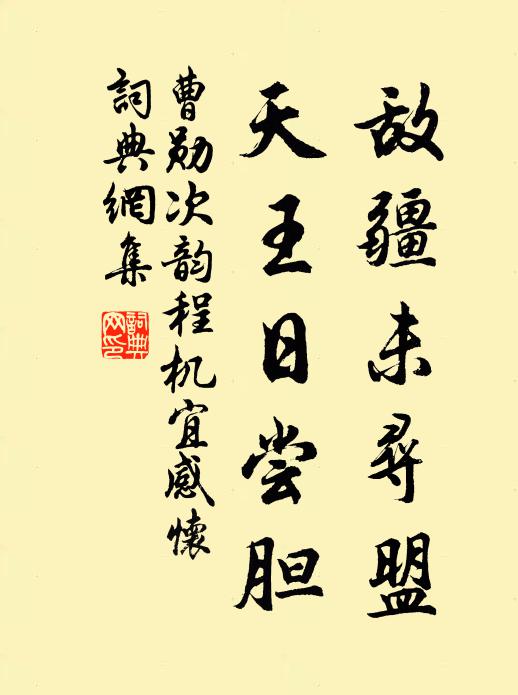 敌疆未尋盟
天王日尝胆
曹勋次韵程机宜感懷
詞典網集
詞典网印